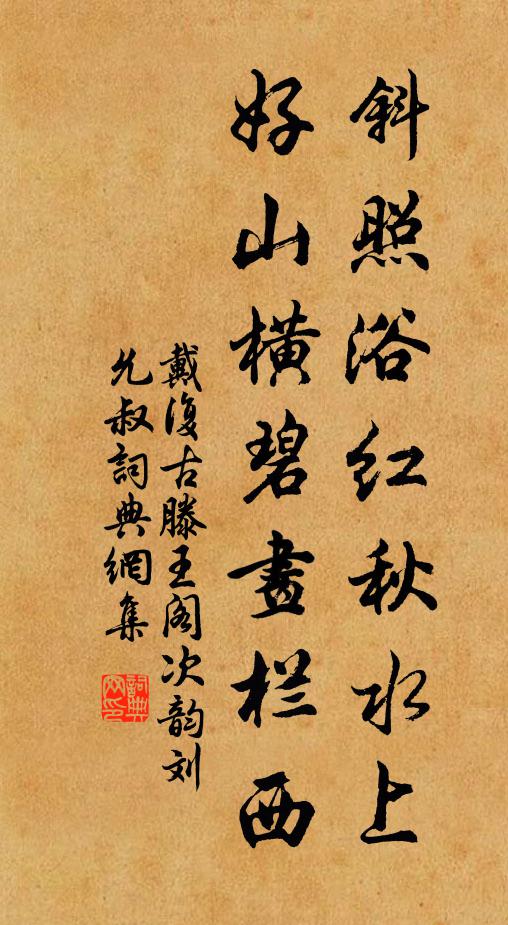 斜照浴红秋水上
好山横碧畫栏西
戴復古滕王阁次韵刘
允叔詞典網集
詞典網印